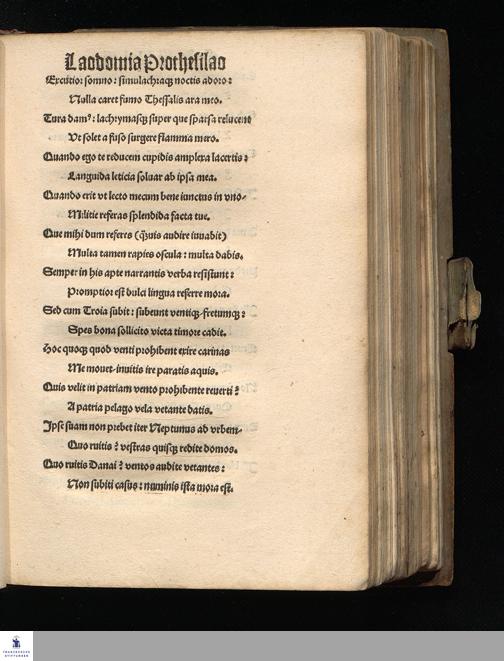 Laodomia Prothesilao
Excutior somno: simulachraqꝫ noctis adoro:
Nulla caret fumo Thessalis ara meo.
Tura damꝰ: lachrymasqꝫ super que sparsa relucent
Ut solet a fuso surgere flamma mero.
Quando ego te reducem cupidis amplexa lacertis:
Languida leticia soluar ab ipsa mea.
Quando erit vt lecto mecum bene iunctus in vno-
Militie referas splendida facta tue.
Que mihi dum referes (q̃uis audire iuuabit)
Multa tamen rapies oscula: multa dabis.
Semper in his apte narrantis verba resistunt:
Promptior est dulci lingua referre mora.
Sed cum Troia subit: subeunt ventiqꝫ-fretumqꝫ:
Spes bona sollicito victa timore cadit.
Hoc quoqꝫ quod venti prohibent exire carinas
Me mouet-inuitis ire paratis aquis.
Quis velit in patriam vento prohibente reuerti?
A patria pelago vela vetante datis.
Ipse suam non prebet iter Neptunus ad vrbem-
Quo ruitis? vestras quisqꝫ redite domos.
Quo ruitis Danai? ventos audite vetantes:
Non subiti casus: numinis ista mora est.
FRANCKESCHE
STIFTUNGEN